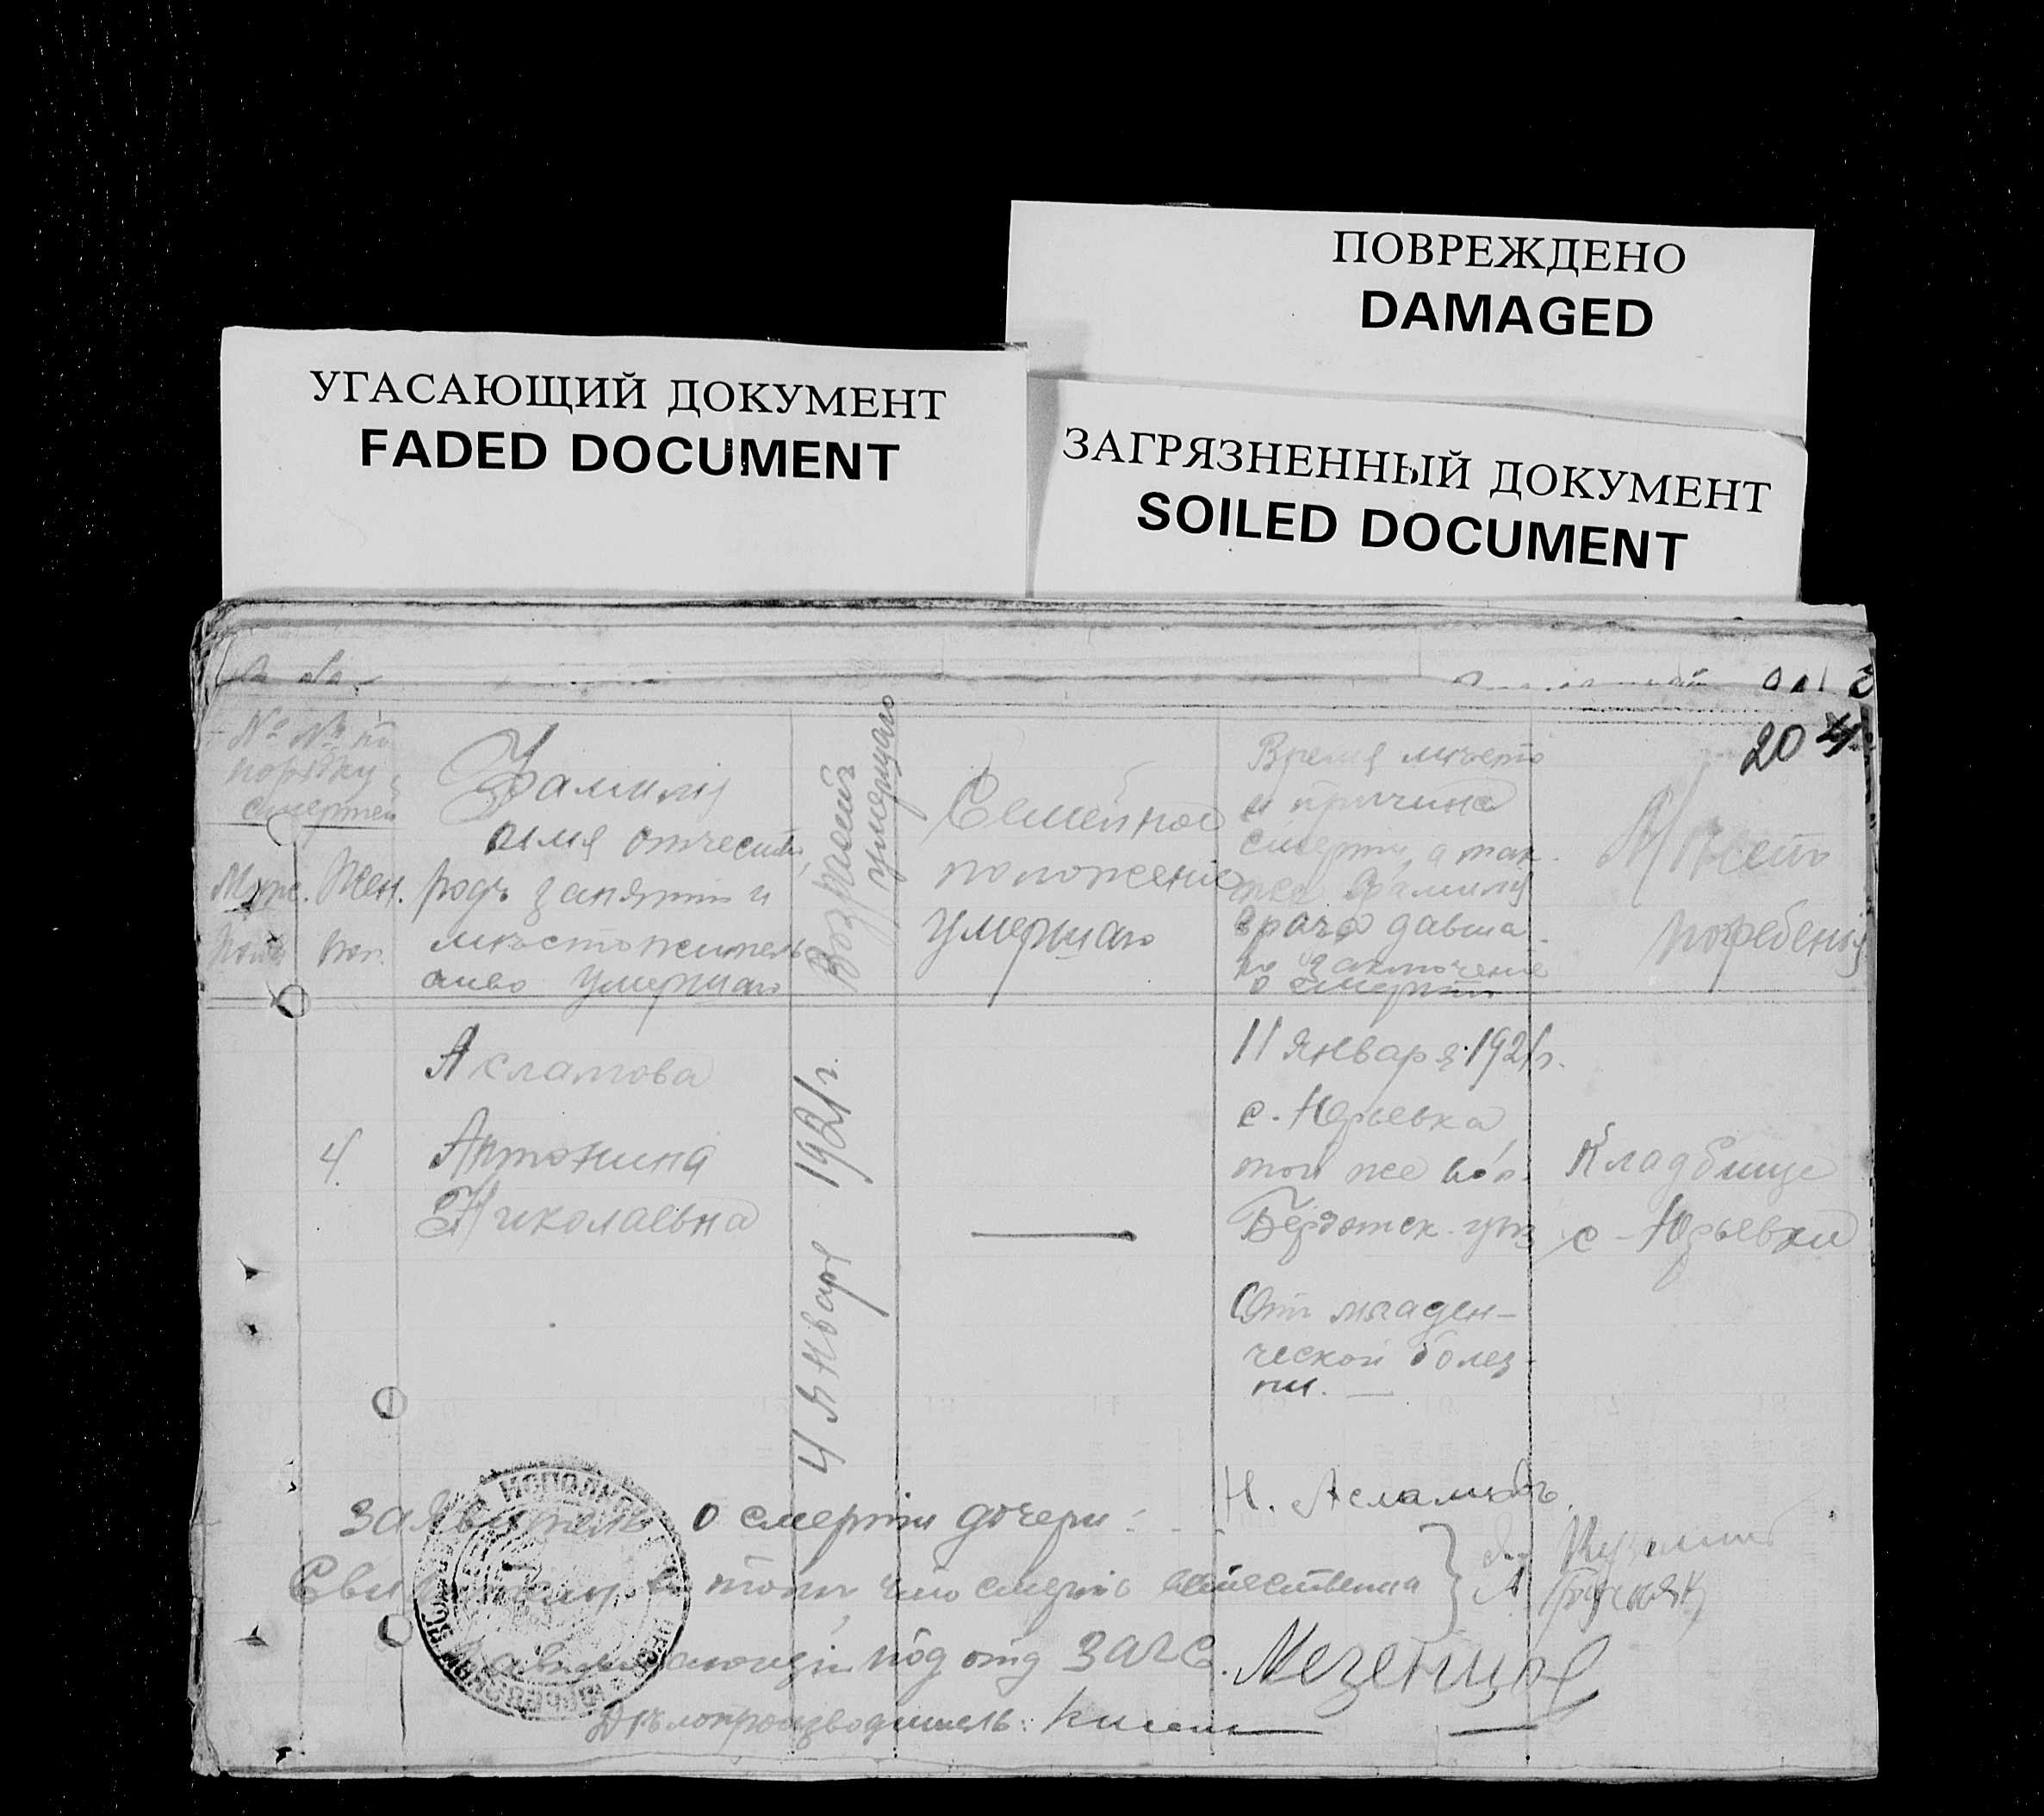 ПОВРЕЖДЕНО
DAMAGED
УГАСАЮЩИЙ ДОКУМЕНТ
FADED DOCUMENT
ЗАГРЯЗНЕННЫЙ ДОКУМЕНТ
SOILED DOCUMENT
20
№ №№ по
порядку
смертей
Муж. Жен.
пол. пол.
Фамилия
имя отчество,
родъ занятия и
мѣстожитель
ство умершаго
Возрастъ
умершаго
Семейное
положение
умершаго
Время мѣсто
и причина
смерти, а так-
же фамилия
врача давша-
го заключение
о смерти
Мѣсто
погребения
4
Асламова
Антонина
Николаевна
4 Января 1921г.
11 января 1921г.
с. Юрьевка
той же вол.
Бердянск. уѣз
От младен-
ческой болез-
ни.
Кладбище
с. Юрьевки
заявитель о смерти дочери:
Н. Асламовъ.
в том, что смерть естественна
под отд ЗАГС. Мезенцов
Дѣлопроизводитель: